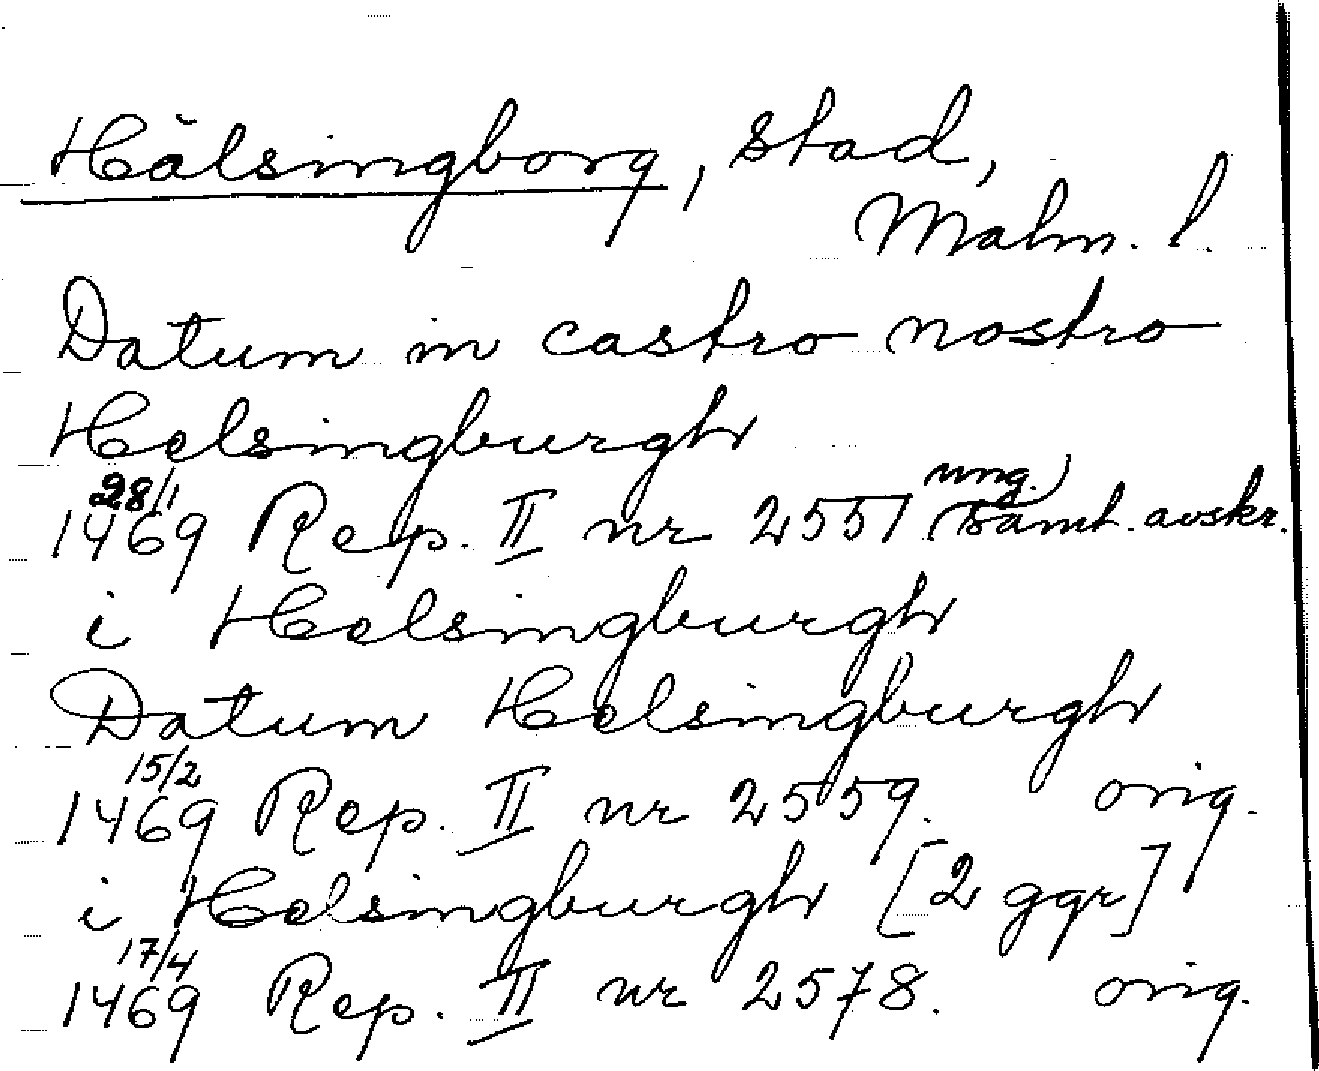 Hälsingborg, stad,
Malm. l.
Datum in castro nostro
Helsingburgh
28/1 1469 Rep. II nr 2551 (ung. samt. avskr.)
i Helsingburgh
Datum Helsingburgh
15/2 1469 Rep. II nr 2559. orig.
i Helsingburgh [2 ggr]
17/4 1469 Rep. II nr 2578. orig.